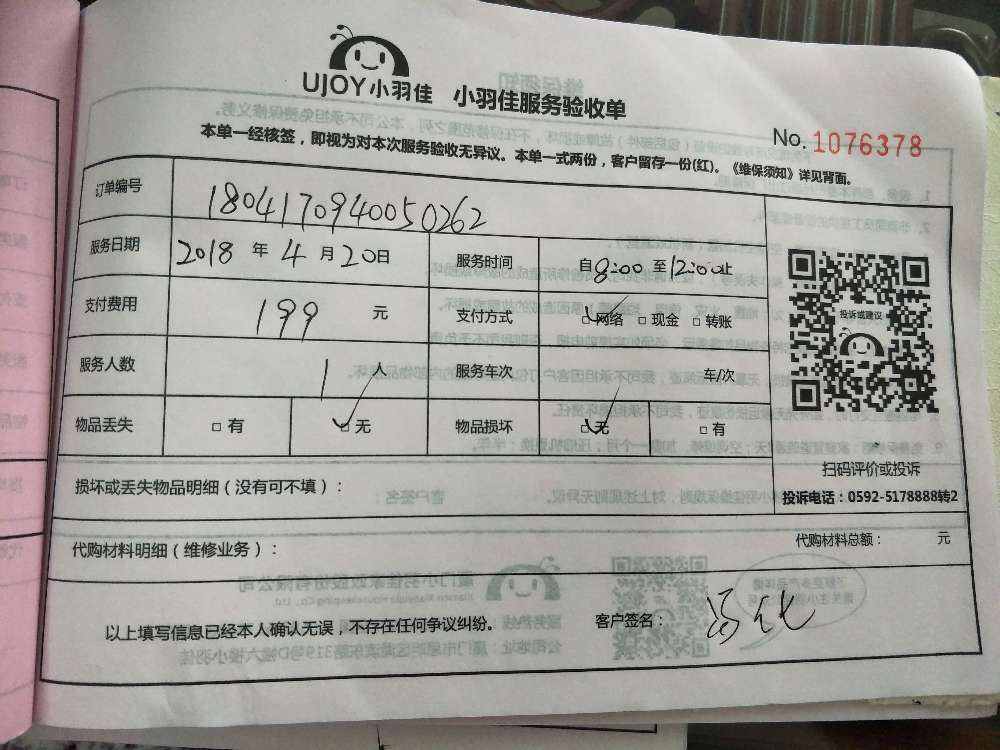 UJOY小羽佳 小羽佳服务验收单
No. 1076378
本单一经核签，即视为对本次服务验收无异议。本单一式两份，客户留存一份(红)。《维保须知》详见背面。
订单编号 1804170940050262
服务日期 2018 年 4 月 20 日 服务时间 自 8:00 至 12:00 止
支付费用 199 元 支付方式 □网络 □现金 □转账
投诉或建议
服务人数 1 人 服务车次 车/次
物品丢失 □有 □无 物品损坏 □无 □有
扫码评价或投诉
损坏或丢失物品明细（没有可不填）：
投诉电话：0592-5178888转2
代购材料明细（维修业务）： 代购材料总额： 元
以上填写信息已经本人确认无误，不存在任何争议纠纷。 客户签名：